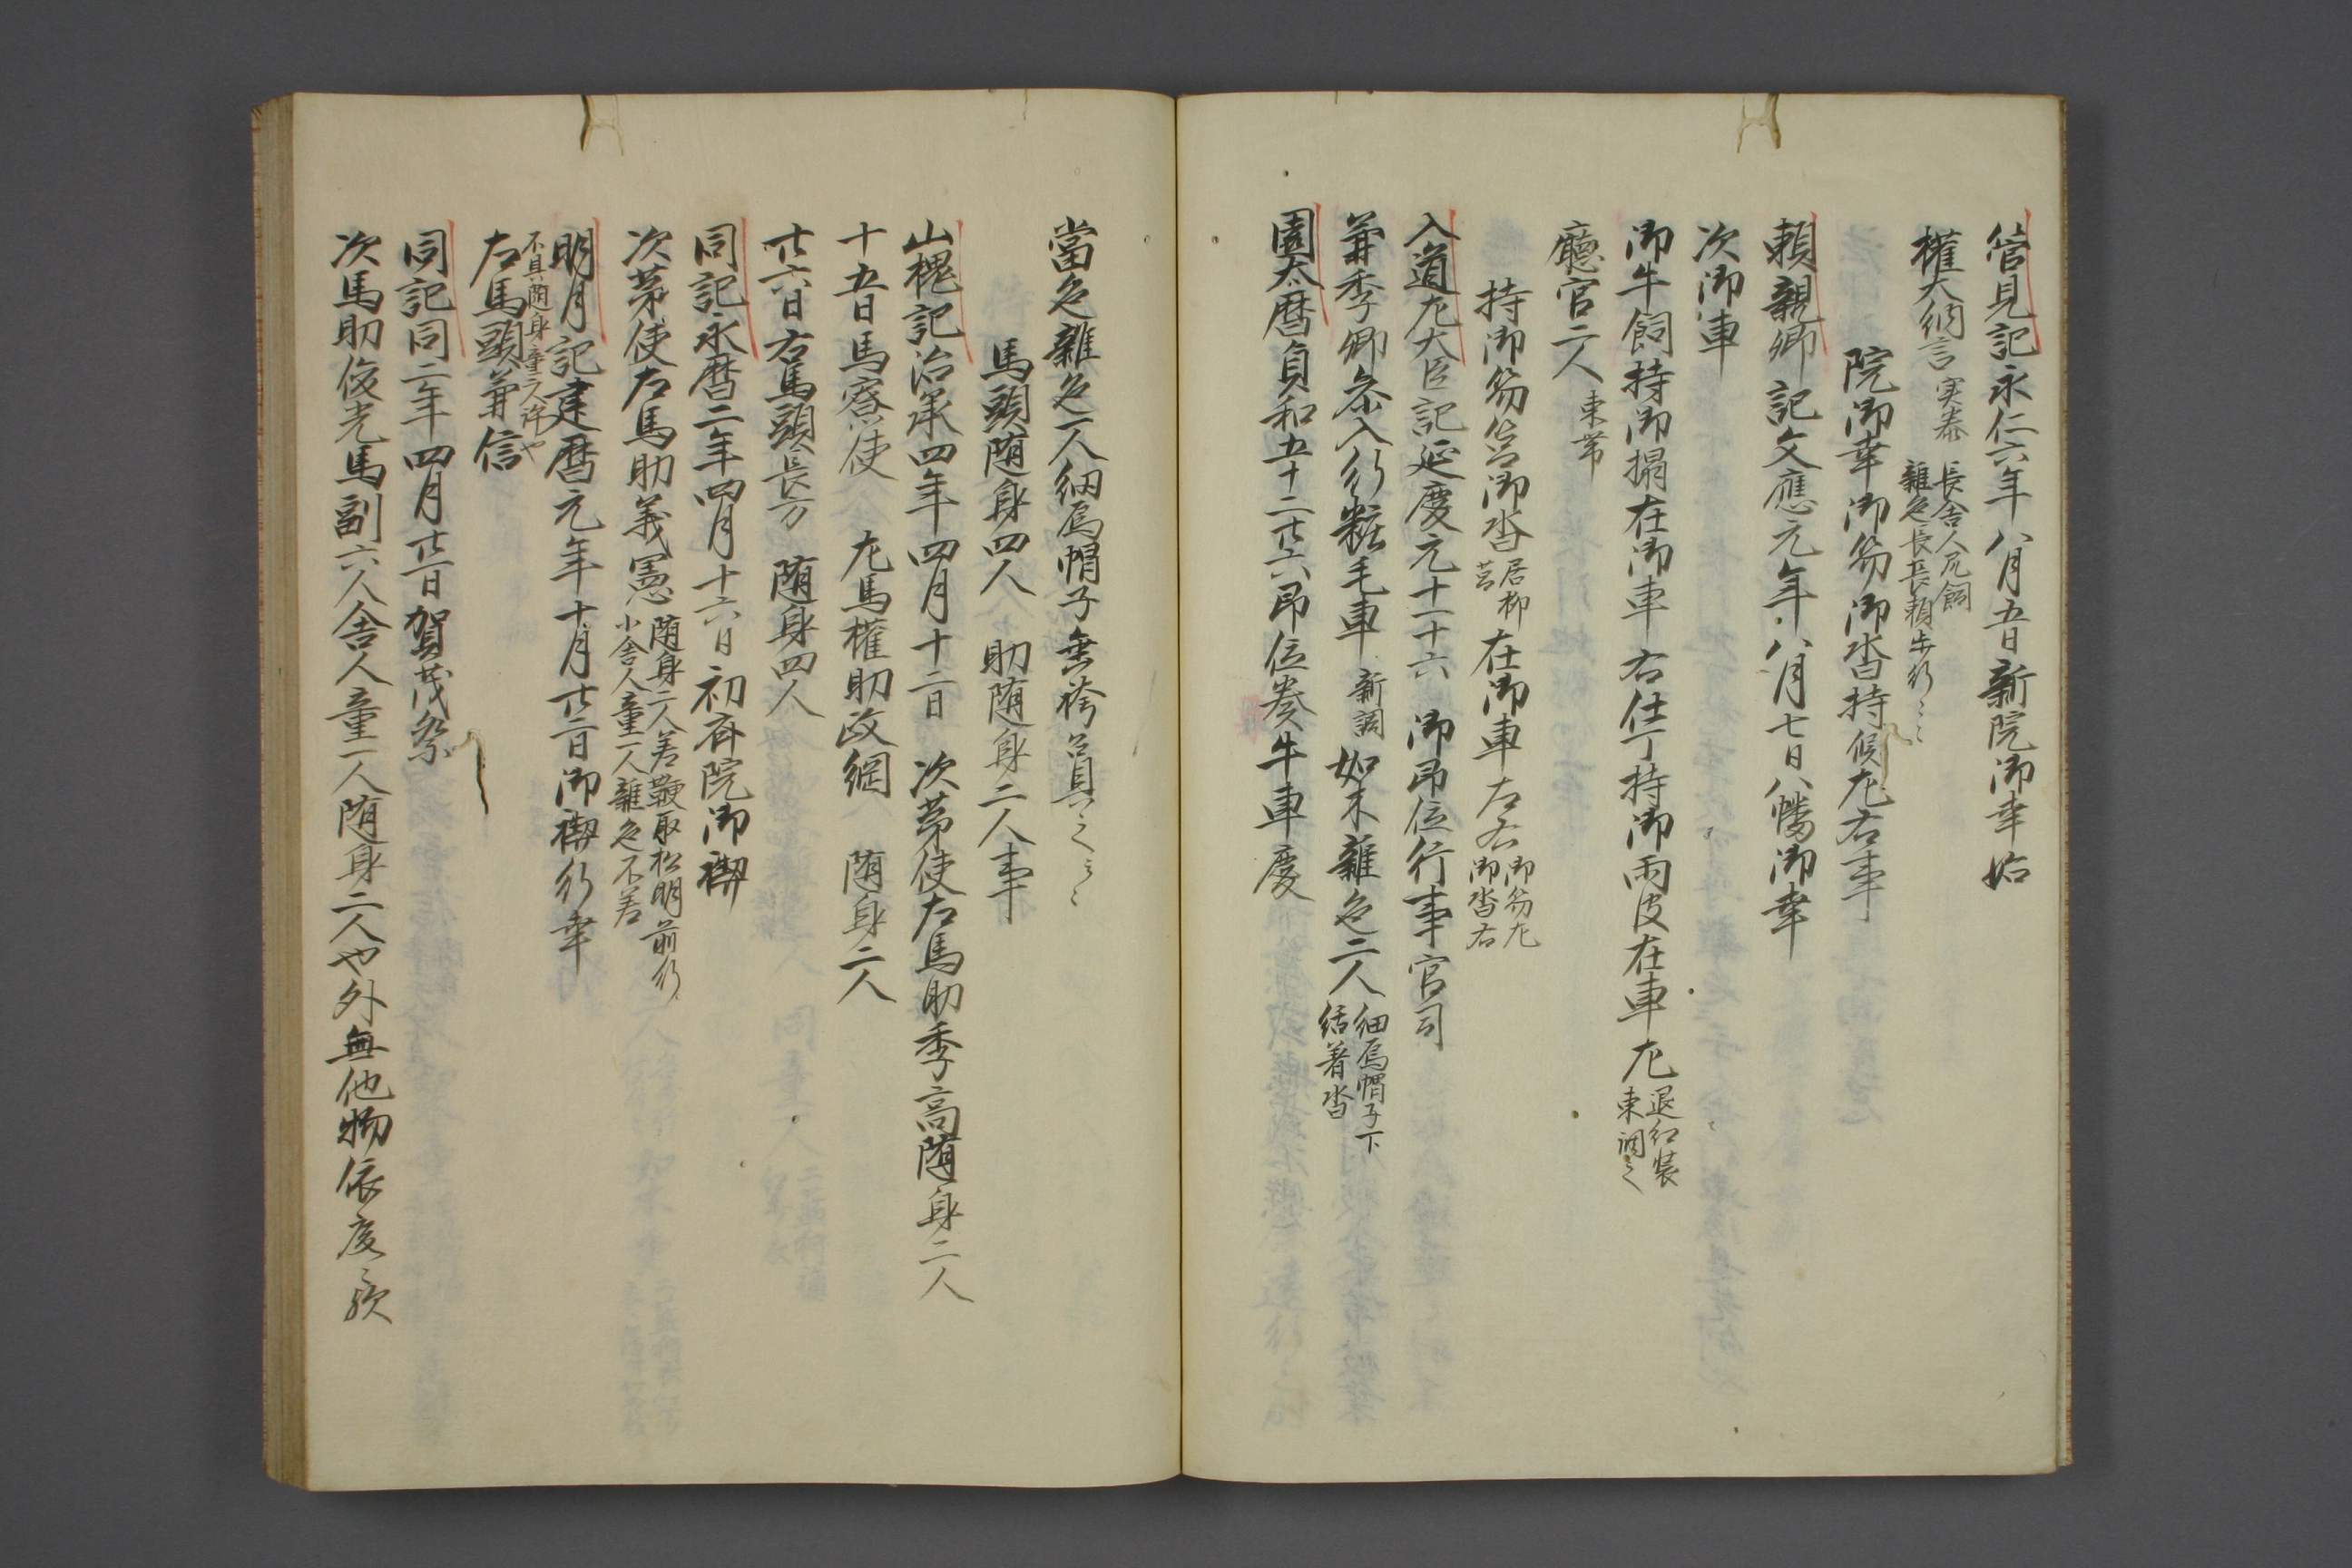 管見記永仁六年八月五日新院御幸始
權大納言実泰 長舎人尻飼
雑色長長頼歩行云々
院御幸御笏御沓持候左右事
頼親卿記文應元年八月七日八幡御幸
次御車
御牛飼持御搨在御車右仕丁持御雨皮在車左 退紅装
束調之
廳官二人 束帯
持御笏筥御沓 居柳
筥 在御車左右 御笏左
御沓右
入道左大臣記延慶元十一十六 御即位行事官司
兼季卿参入行粧毛車 新調 如木雑色二人 細烏帽子下
結着沓
園太暦貞和五十二廿六即位奏牛車慶
當色雑色一人細烏帽子無袴
馬頭随身四人 助随身二人事
山槐記治承四年四月十二日 次第使右馬助季高随身二人
十五日馬寮使 左馬權助政綱 随身二人
廿六日右馬頭長方 随身四人
同記永暦二年四月十六日初斎院御禊
次第使右馬助義憲 随身二人差鞭取松明前行
小舎人童一人雑色不差
明月記建暦元年十月廿二日御禊行幸
右馬頭兼信 不具随身童二人許也
同記同二年四月廿一日賀茂祭
次馬助俊光馬副六人舎人童一人随身二人也外無他物依度々歟